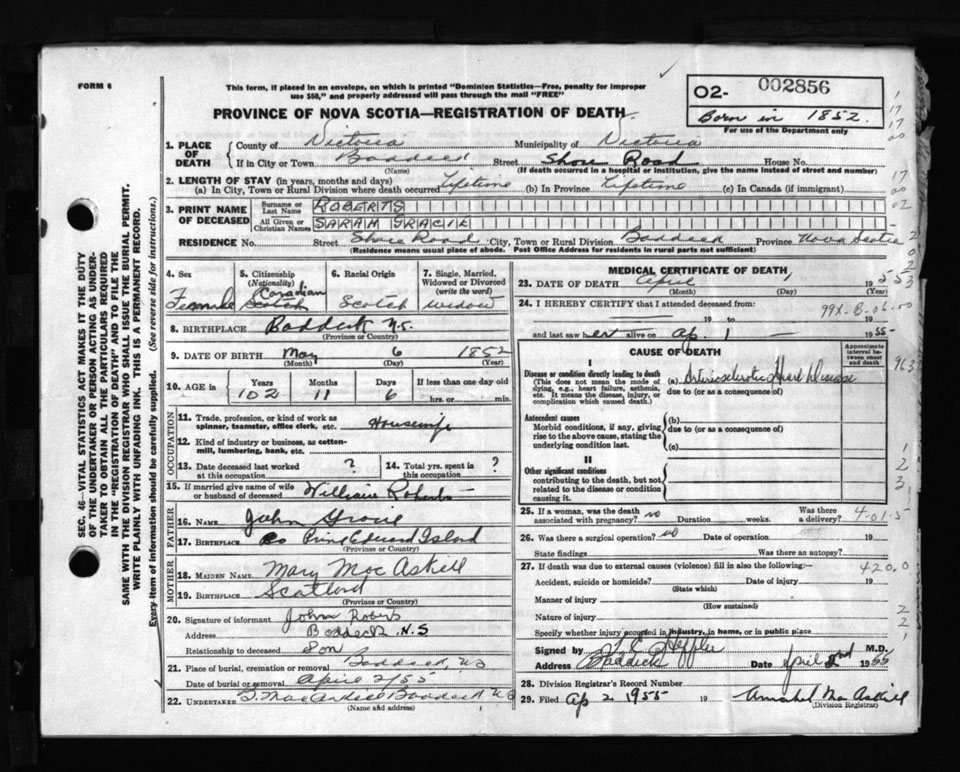 FORM 6
This form, if placed in an envelope, on which is printed "Dominion Statistics—Free, penalty for improper
use $50," and properly addressed will pass through the mail "FREE"
O2- 002856
Born in 1852.
For use of the Department only
PROVINCE OF NOVA SCOTIA—REGISTRATION OF DEATH
1. PLACE OF DEATH
County of Victoria Municipality of Victoria
If in City or Town Baddeck Street Shore Road House No.
(Name) (If death occurred in a hospital or institution, give the name instead of street and number)
2. LENGTH OF STAY (in years, months and days)
(a) In City, Town or Rural Division where death occurred Lifetime (b) In Province Lifetime (c) In Canada (if immigrant)
3. PRINT NAME OF DECEASED
Surname or Last Name ROBERTS
All Given or Christian Names SARAH GRACIE
RESIDENCE No. Street Shore Road City, Town or Rural Division Baddeck Province Nova Scotia
Residence means usual place of abode. Post Office Address for residents in rural parts not sufficient)
4. Sex
Female
5. Citizenship (Nationality)
Canadian
Scotch
6. Racial Origin
Scotch
7. Single, Married, Widowed or Divorced (write the word)
widow
8. BIRTHPLACE Baddeck N.S.
(Province or Country)
9. DATE OF BIRTH May 6 1852
(Month) (Day) (Year)
10. AGE in Years Months Days If less than one day old
102 11 6 hrs. or min.
OCCUPATION
11. Trade, profession, or kind of work as
spinner, teamster, office clerk, etc. Housewife
12. Kind of industry or business, as cotton-
mill, lumbering, bank, etc.
13. Date deceased last worked at this occupation ?
14. Total yrs. spent in this occupation ?
15. If married give name of wife
or husband of deceased William Roberts
FATHER
16. Name John
17. Birthplace Prince Edward Island
(Province or Country)
MOTHER
18. MAIDEN NAME Mary MacAskill
19. BIRTHPLACE Scotland
(Province or Country)
20. Signature of informant John Roberts
Address Baddeck N.S
Relationship to deceased Son
21. Place of burial, cremation or removal Baddeck, NS
Date of burial or removal April 2/55
22. UNDERTAKER Baddeck NS
(Name and address)
MEDICAL CERTIFICATE OF DEATH
23. DATE OF DEATH April 1 55
(Month) (Day) (Year)
24. I HEREBY CERTIFY that I attended deceased from:
19 to 19
99X-B-06-00
and last saw her alive on Ap. 1 1955
CAUSE OF DEATH
Approximate interval between onset and death
I
Disease or condition directly leading to death
(This does not mean the mode of
dying, e.g., heart failure, asthenia,
etc. It means the disease, injury, or
complication which caused death.)
(a) Arteriosclerotic Heart Disease
due to (or as a consequence of)
Antecedent causes
Morbid conditions, if any, giving
rise to the above cause, stating the
underlying condition last.
(b)
due to (or as a consequence of)
(c)
II
Other significant conditions
contributing to the death, but not
related to the disease or condition
causing it.
25. If a woman, was the death
associated with pregnancy? no Duration weeks. Was there a delivery?
4-01-5
26. Was there a surgical operation? no Date of operation 19
State findings Was there an autopsy?
27. If death was due to external causes (violence) fill in also the following:
420.0
Accident, suicide or homicide? Date of injury 19
(State which)
Manner of injury
(How sustained)
Nature of injury
Specify whether injury occurred in industry, in home, or in public place
Signed by M.D.
Address Baddeck Date April 2nd 1955
28. Division Registrar's Record Number
29. Filed Ap 2 1955 19 Annabel MacAskill
(Division Registrar)
SEC. 46—VITAL STATISTICS ACT MAKES IT THE DUTY
OF THE UNDERTAKER OR PERSON ACTING AS UNDER-
TAKER TO OBTAIN ALL THE PARTICULARS REQUIRED
IN THE "REGISTRATION OF DEATH" AND TO FILE THE
SAME WITH THE DIVISION REGISTRAR WHO SHALL ISSUE THE BURIAL PERMIT.
WRITE PLAINLY WITH UNFADING INK. THIS IS A PERMANENT RECORD.
Every item of information should be carefully supplied. (See reverse side for instructions.)